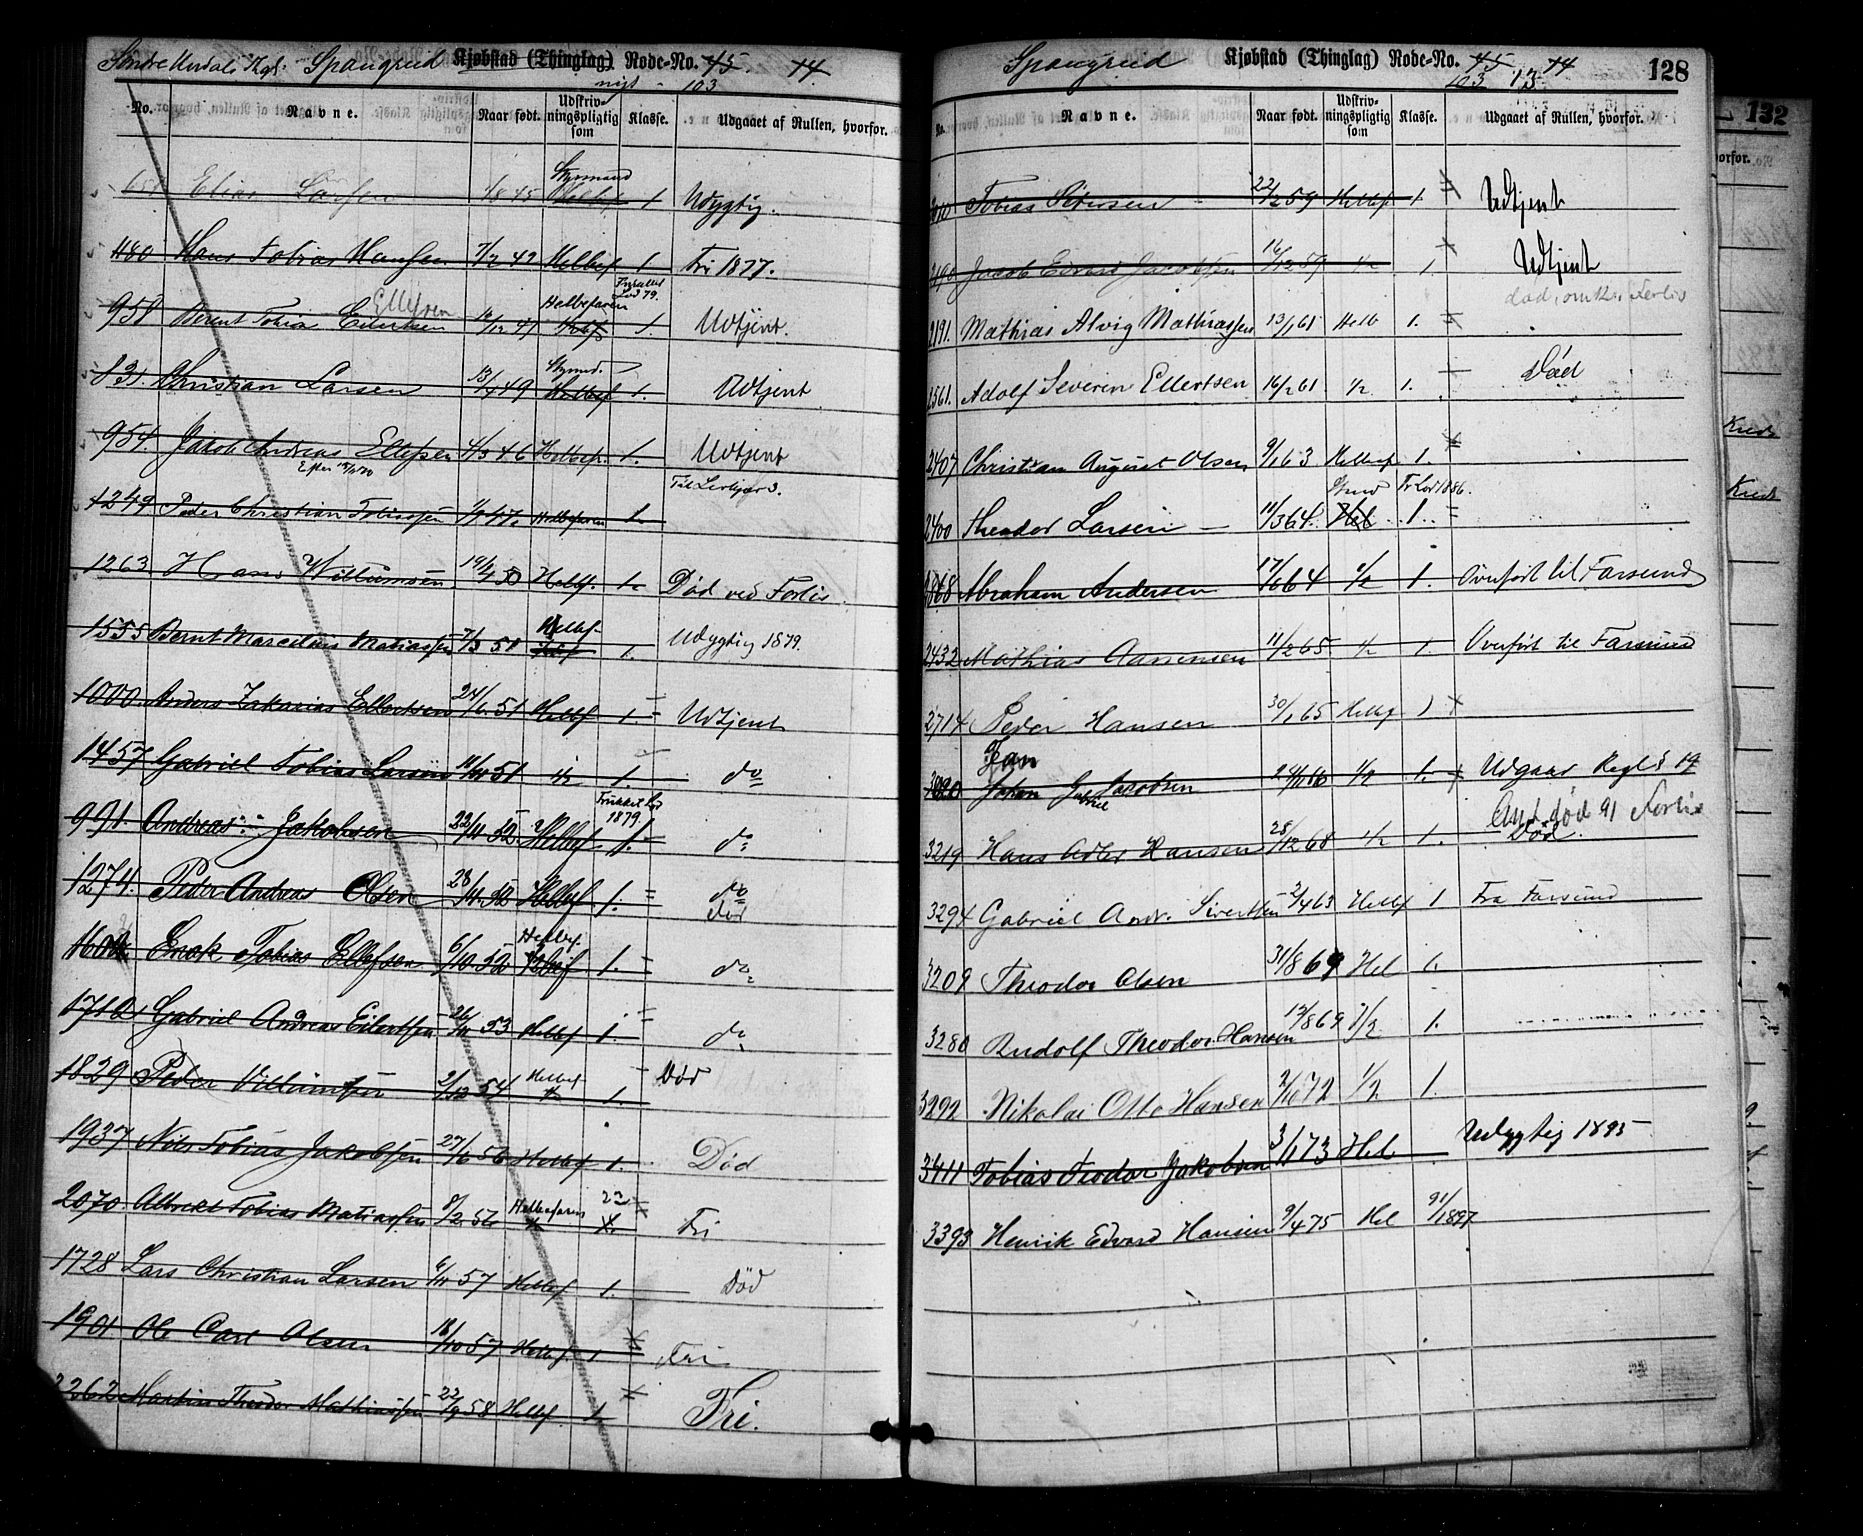 Spangreid Kjøbstad (Thinglag) Rode-No. 45. 14.
nyt - 103
No. Navne. Naar født. Udskrivningspligtig som Klasse. Udgaaet af Rullen, hvorfor.
Elias Larsen 1845 Styrmand 1 Udygtig.
480 Hans Tobias Hansen 7/2 42 Helbef 1. Fri 1877.
Ellefsen Helbefaren Frikaldet Lod 79.
958 Berent Tobia Eilertsen 12/12 47 1. Udtjent.
Styrmd.
831. Christian Larsen 13/4 49 Helbef 1. Udtjent
954. Jakob Andreas Ellefsen 4/3 46 Helbef. 1. Udtjent
1249 Peder Christian Tobiassen Helbefaren 1.
1263 Hans Willumsen 19/4 50 Helbf. 1. Død ved Forlis.
1555 Bernt Marcelius Matiassen 7/3 51 Helbf. 1. Udygtig 1879.
1000. Anders Zakarias Ellertsen 24/6 51 Helbf 1 Udtjent
1457 Gabriel Tobias Larsen 18/10 51 1/2 1. do
Trukket Lod 1879.
991. Andreas Jakobsen 22/4 52. Helbef 1. do
1274. Peder Andreas Olsen 28/4 52 Helbef 1. do
Død
Enok Tobias Ellefsen 6/10 52 Helbef. 1. do
1712 Gabriel Andreas Eilertsen 26/10 53 Helbf 1. do
1829 Peder Villumsen 2/12 54 Helbef 1. Død
1937 Nils Tobias Jakobsen 27/6 56 Helbef 1. Død
2070. Albrekt Tobias Matiassen 8/2 56 Helbefaren Fri
1728 Lars Christian Larsen 57 Helbef 1. Død
1901 Ole Carl Olsen 18/10 57 Helbf. 1 Fri
2262 Martin Theodor Mathiassen 22/9 58 Helbf. 1 Fri.
Spangreid Kjøbstad (Thinglag) Rode-No. 45 14 128
103 13
No. Navne. Naar født. Udskrivningspligtig som Klasse. Udgaaet af Rullen, hvorfor.
Tobias Petersen 22/2 59 Helbef 1. Udtjent
2190 Jacob Edvard Jacobsen 16/12 59 1/2 1. Udtjent
død, omk. Forlis
2191. Mathias Alvig Mathiassen 13/1 61 Helb 1.
2561. Adolf Severin Ellertsen 16/2 61 1/2 1. Død
2407 Christian August Olsen 9/1 63 Helbef 1.
Fr Lod 1886.
2400 Theodor Larsen 11/3 64. Hel 1.
1868 Abraham Andersen 17/6 64 1/2 1. Overført til Farsund
2432 Mathias Aanensen 11/2 65 1/2 1. Overført til Farsund
2714 Peder Hansen 30/1 65 Helbf 1
Jan
Johan Gabriel Jacobsen 1/2 1. Udgaar Regl § 19
Ant. død 91 Forlis
3219 Hans Adler Hansen 28/12 68 1/2 1. Død.
3294 Gabriel Andr. Sivertsen 2/4 63 Helbf 1 Fra Farsund
3209 Theodor Olsen 31/8 69 Hel 1.
3280 Rudolf Theodor Hansen 13/8 69 1/2 1.
3292 Nikolai Otto Hansen 2/10 72 1/2 1.
3411 Tobias Teodor Jakobsen 3/1 73 Hel Udygtig 1895
3393 Henrik Edvard Hansen 9/4 75 Hel 91/1897
132
hvorfor.
Kreds
Kreds